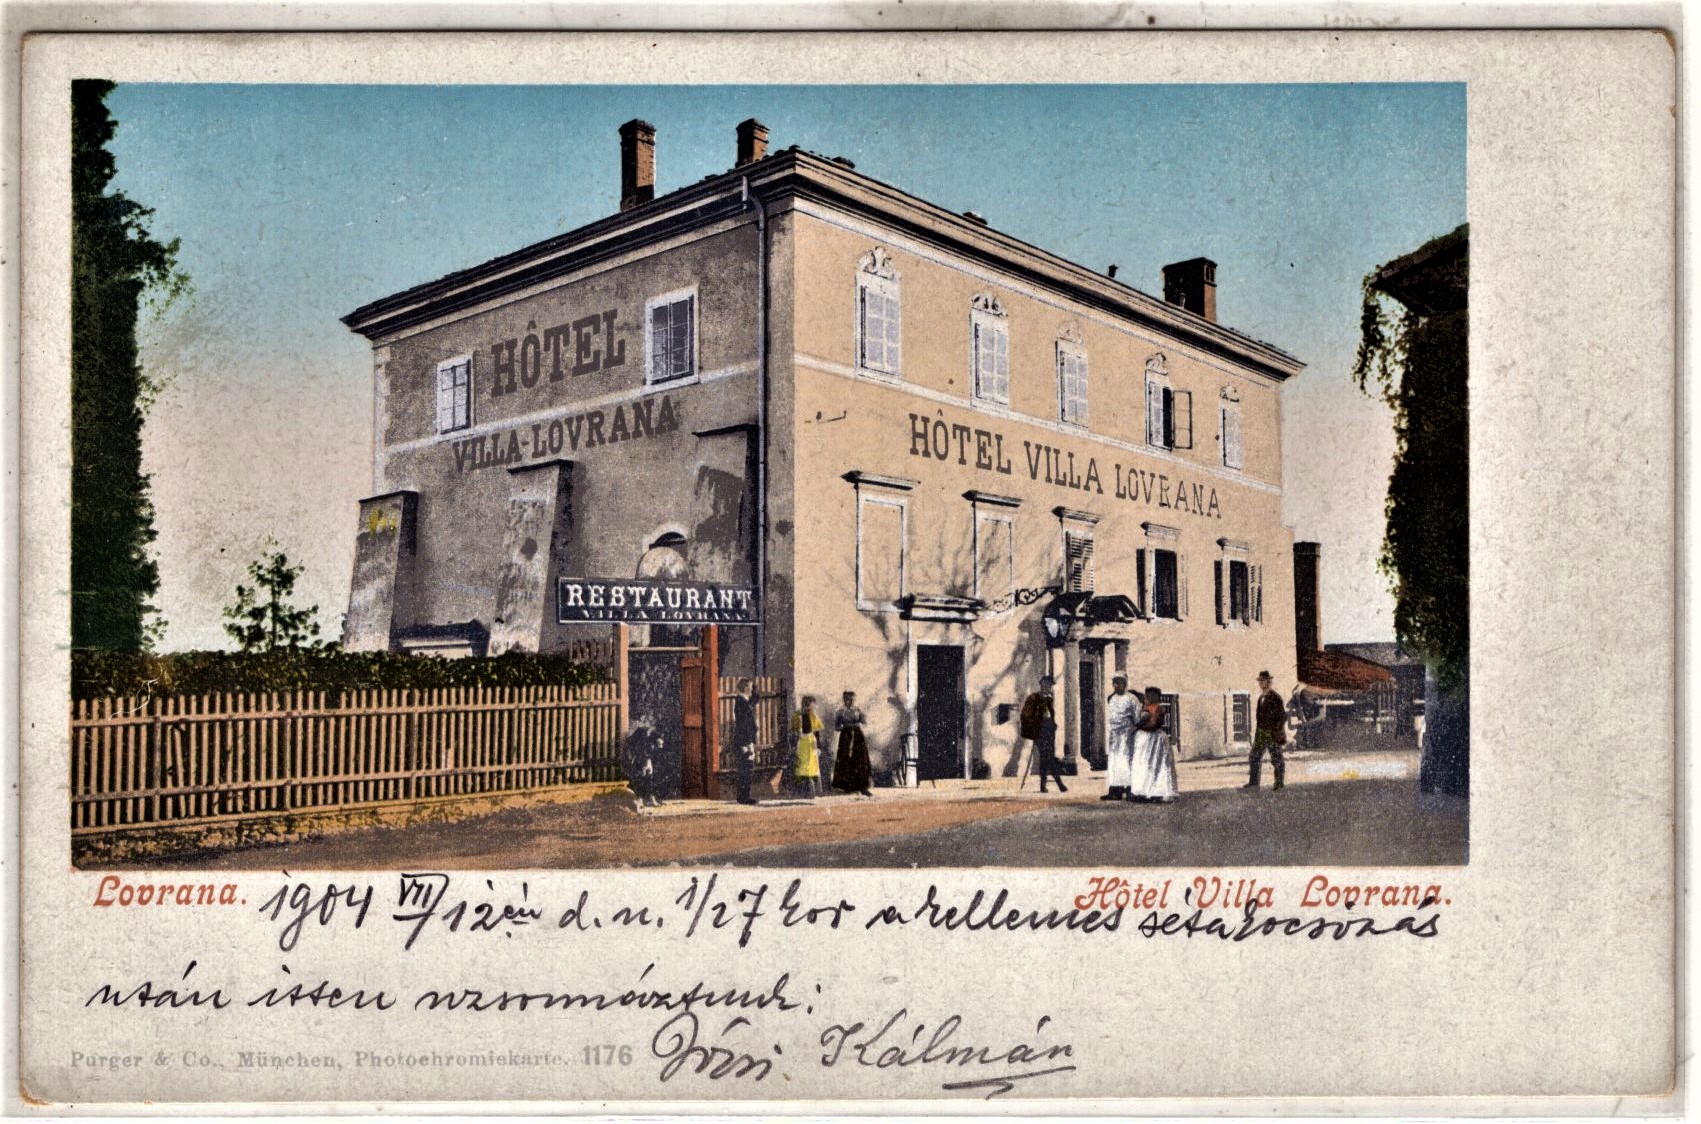 HÔTEL
VILLA-LOVRANA
HÔTEL VILLA LOVRANA
RESTAURANT
VILLA LOVRANA
Lovrana.
Hôtel Villa Lovrana.
1904 VII/12én d. u. 1/27 kor a kellemes sétakocsizás
után itten uzsonnáztunk:
Józsi Kálmán
Purger & Co., München, Photochromiekarte. 1176